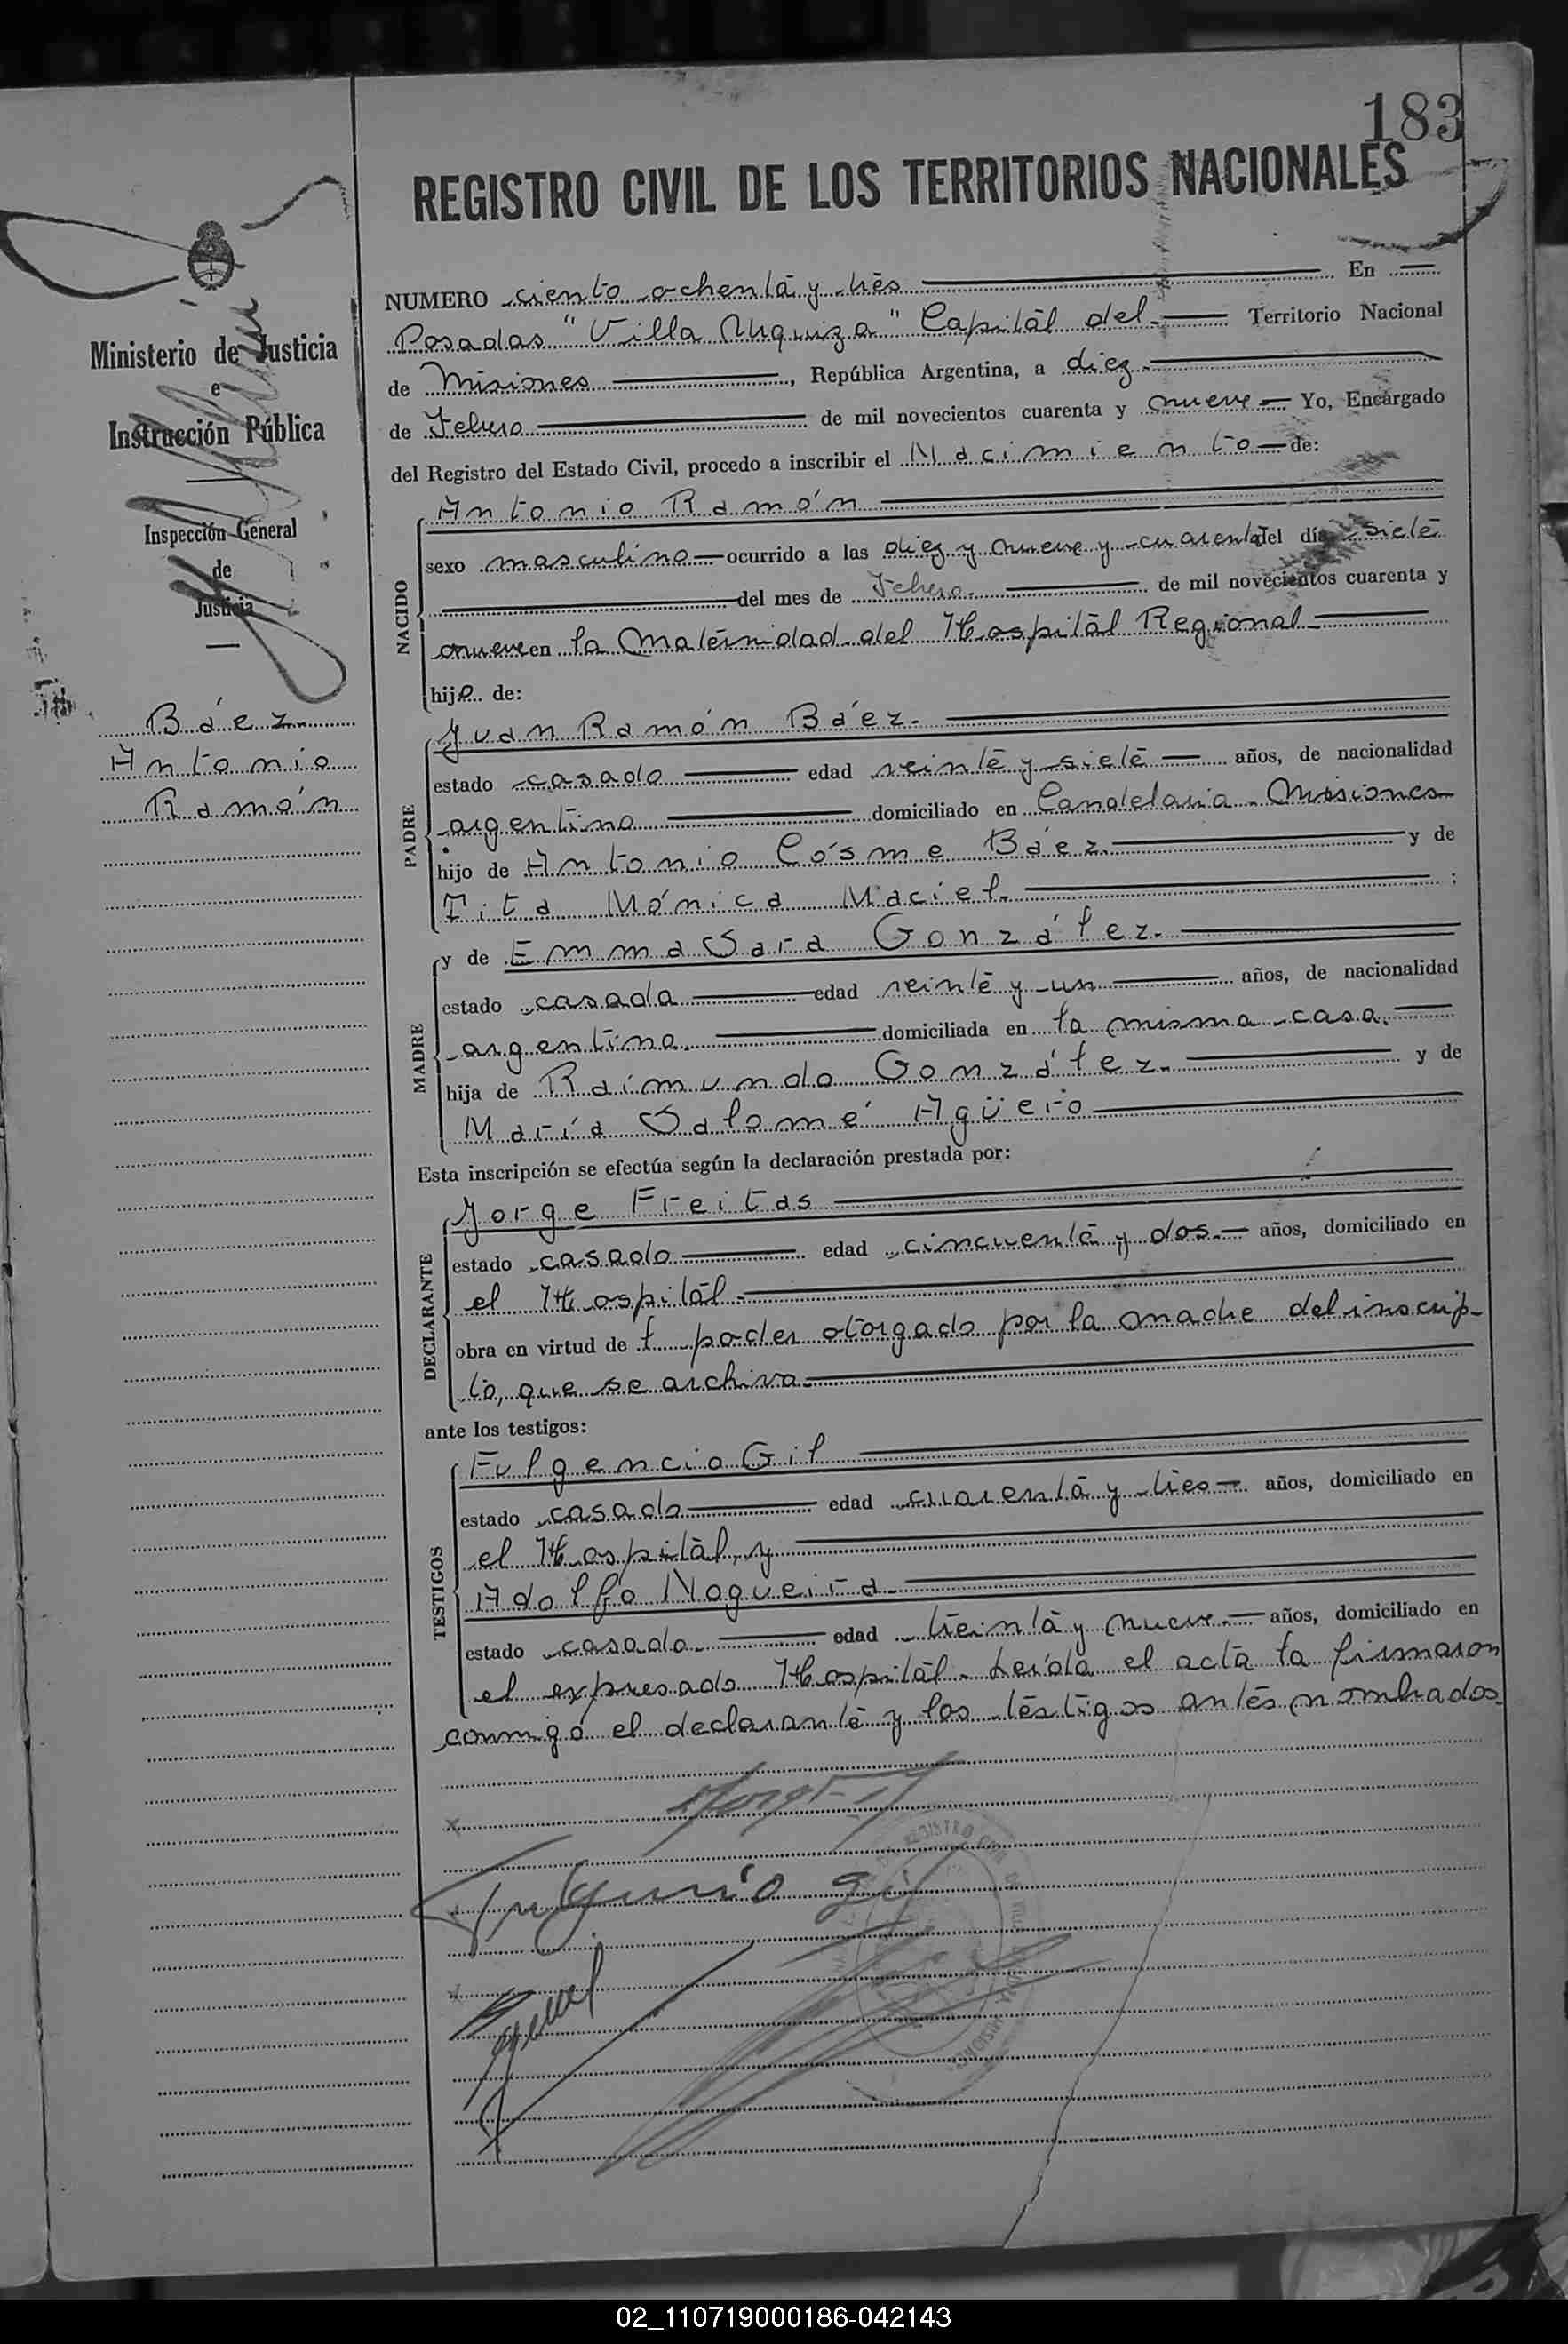 183
REGISTRO CIVIL DE LOS TERRITORIOS NACIONALES
Ministerio de Justicia
e
Instrucción Pública
Inspección General
de
Justicia
Báez.
Antonio
Ramón
NUMERO ciento ochenta y tres En
Posadas "Villa Urquiza" Capital del Territorio Nacional
de Misiones, República Argentina, a diez
de Febrero de mil novecientos cuarenta y nueve Yo, Encargado
del Registro del Estado Civil, procedo a inscribir el Nacimiento de:
NACIDO
Antonio Ramón
sexo masculino ocurrido a las diez y nueve y cuarenta del día siete
del mes de Febrero. de mil novecientos cuarenta y
nueve en la Maternidad del Hospital Regional
hijo de:
PADRE
Juan Ramón Báez.
estado casado edad veinte y siete años, de nacionalidad
argentino domiciliado en Candelaria - Misiones
hijo de Antonio Cósme Báez. y de
Tita Mónica Maciel. ;
MADRE
y de Emma Sara González.
estado casada edad veinte y un años, de nacionalidad
argentina. domiciliada en la misma casa.
hija de Raimundo González. y de
María Salomé Agüero
Esta inscripción se efectúa según la declaración prestada por:
DECLARANTE
Jorge Freitas
estado casado edad cincuenta y dos. años, domiciliado en
el Hospital
obra en virtud de l poder otorgado por la madre del inscrip-
to, que se archiva.
ante los testigos:
TESTIGOS
Fulgencio Gil
estado casado edad cuarenta y tres años, domiciliado en
el Hospital, y
Adolfo Nogueira.
estado casado. edad treinta y nueve. años, domiciliado en
el expresado Hospital. Leída el acta la firmaron
conmigo el declarante y los testigos antes nombrados.
Fulgencio Gil
02_110719000186-042143